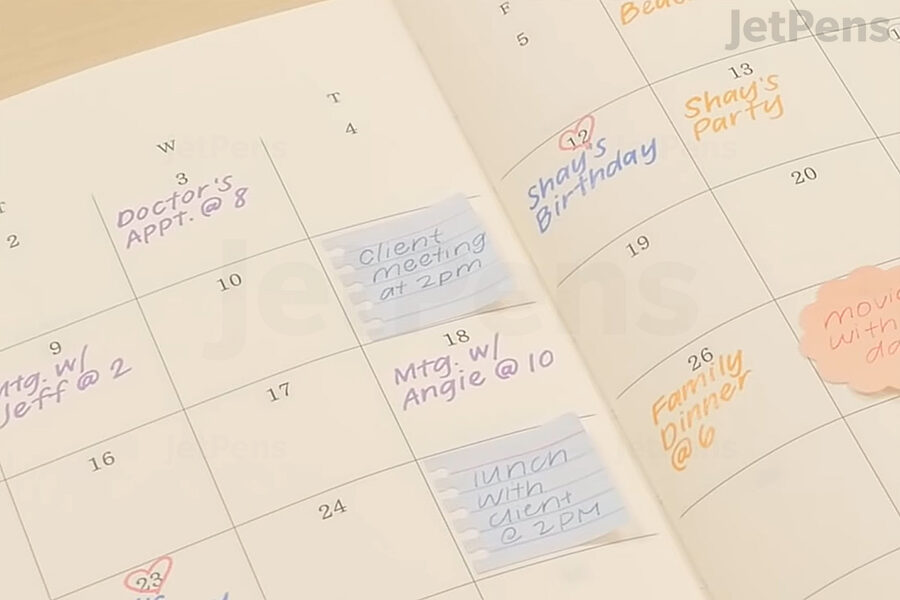 JetPens
F
5
T
W
4
3
2
Doctor's
Appt. @ 8
12
Shay's
Birthday
13
Shay's
Party
10
client
meeting
at 2pm
19
20
9
Mtg. w/
Jeff @ 2
17
18
Mtg. w/
Angie @ 10
26
Family
Dinner
@ 6
with
16
24
lunch
with
client
@ 2PM
23